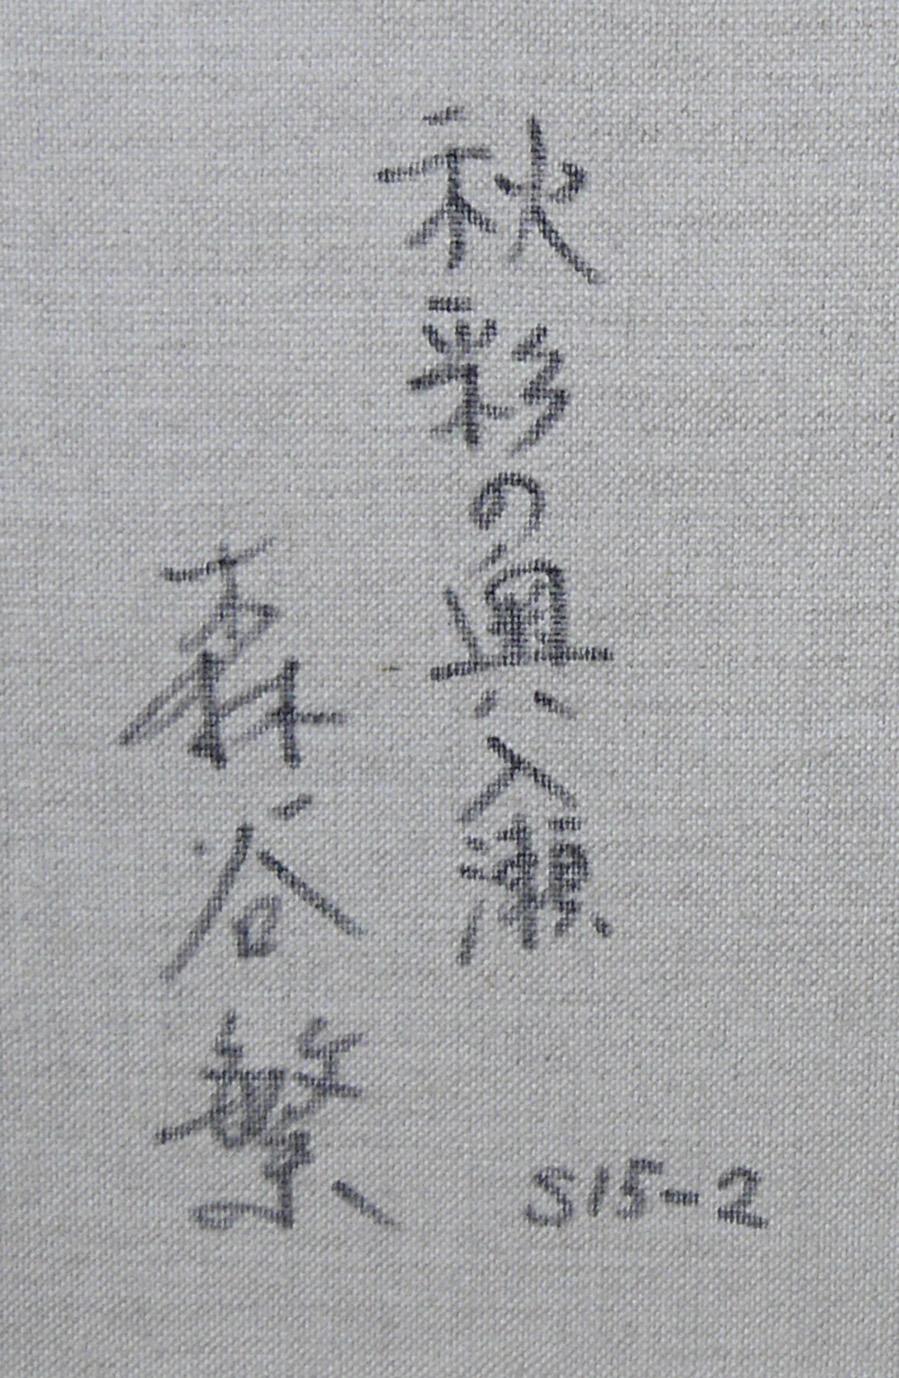 秋彩の奥入瀬
森谷繁
S15-2